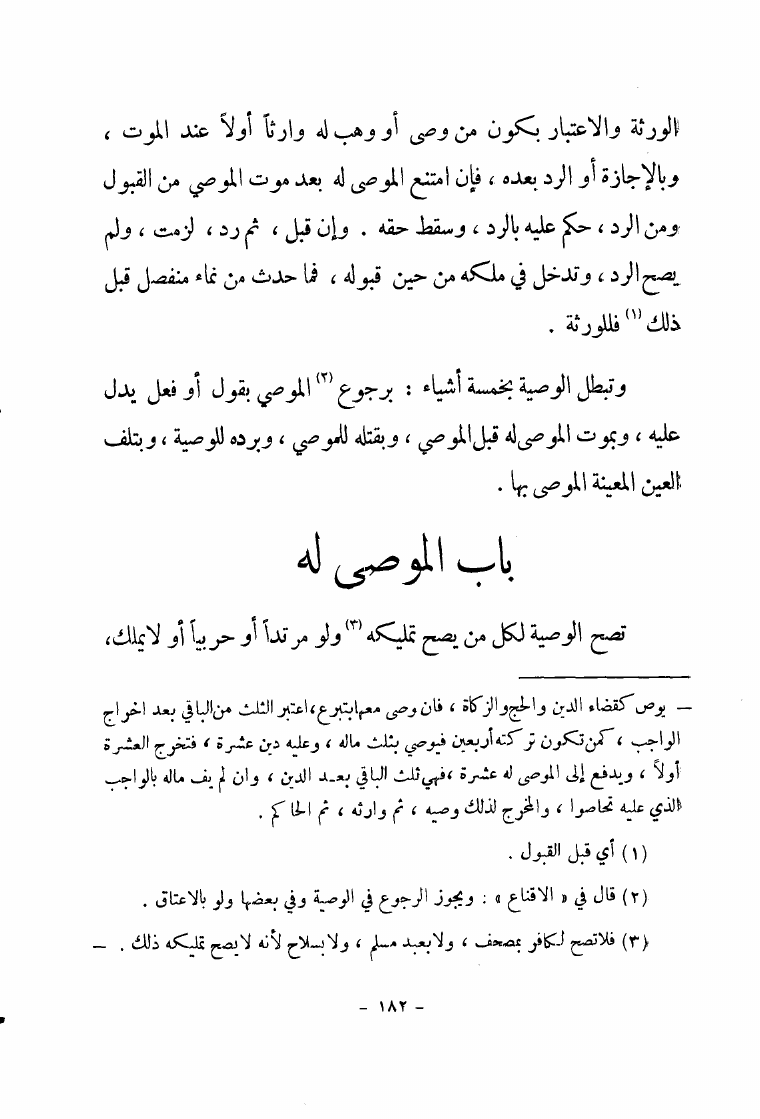 الورثة والاعتبار بكون من وصى أو وهب له وارثاً أولاً عند الموت ،
وبالإجازة أو الرد بعده ، فإن امتنع الموصى له بعد موت الموصي من القبول
ومن الرد ، حكم عليه بالرد ، وسقط حقه . وإن قبل ، ثم رد ، لزمت ، ولم
يصح الرد ، وتدخل في ملكه من حين قبوله ، فما حدث من نماء منفصل قبل
ذلك (١) فللورثة .
وتبطل الوصية بخمسة أشياء : برجوع (٢) الموصي بقول أو فعل يدل
عليه ، وبموت الموصى له قبل الموصي ، وبقتله للموصي ، وبرده للوصية ، وبتلف
العين المعينة الموصى بها .
باب الموصى له
تصح الوصية لكل من يصح تمليكه (٣) ولو مرتداً أو حربياً أو لا يملك،
— يوص كقضاء الدين والحج والزكاة ، فان وصى معها بتبرع، اعتبر الثلث من الباقي بعد اخراج
الواجب ، كمن تكون تركته أربعين فيوصي بثلث ماله ، وعليه دين عشرة ، فتخرج العشرة
أولاً ، ويدفع إلى الموصى له عشرة ،فهي ثلث الباقي بعد الدين ، وان لم يف ماله بالواجب
الذي عليه تحاصوا ، والمخرج لذلك وصيه ، ثم وارثه ، ثم الحاكم .
(١) أي قبل القبول .
(٢) قال في « الاقناع » : ويجوز الرجوع في الوصية وفي بعضها ولو بالاعتاق .
(٣) فلا تصح لكافر بمصحف ، ولا بعبد مسلم ، ولا بسلاح لأنه لا يصح تمليكه ذلك . —
– ١٨٢ –